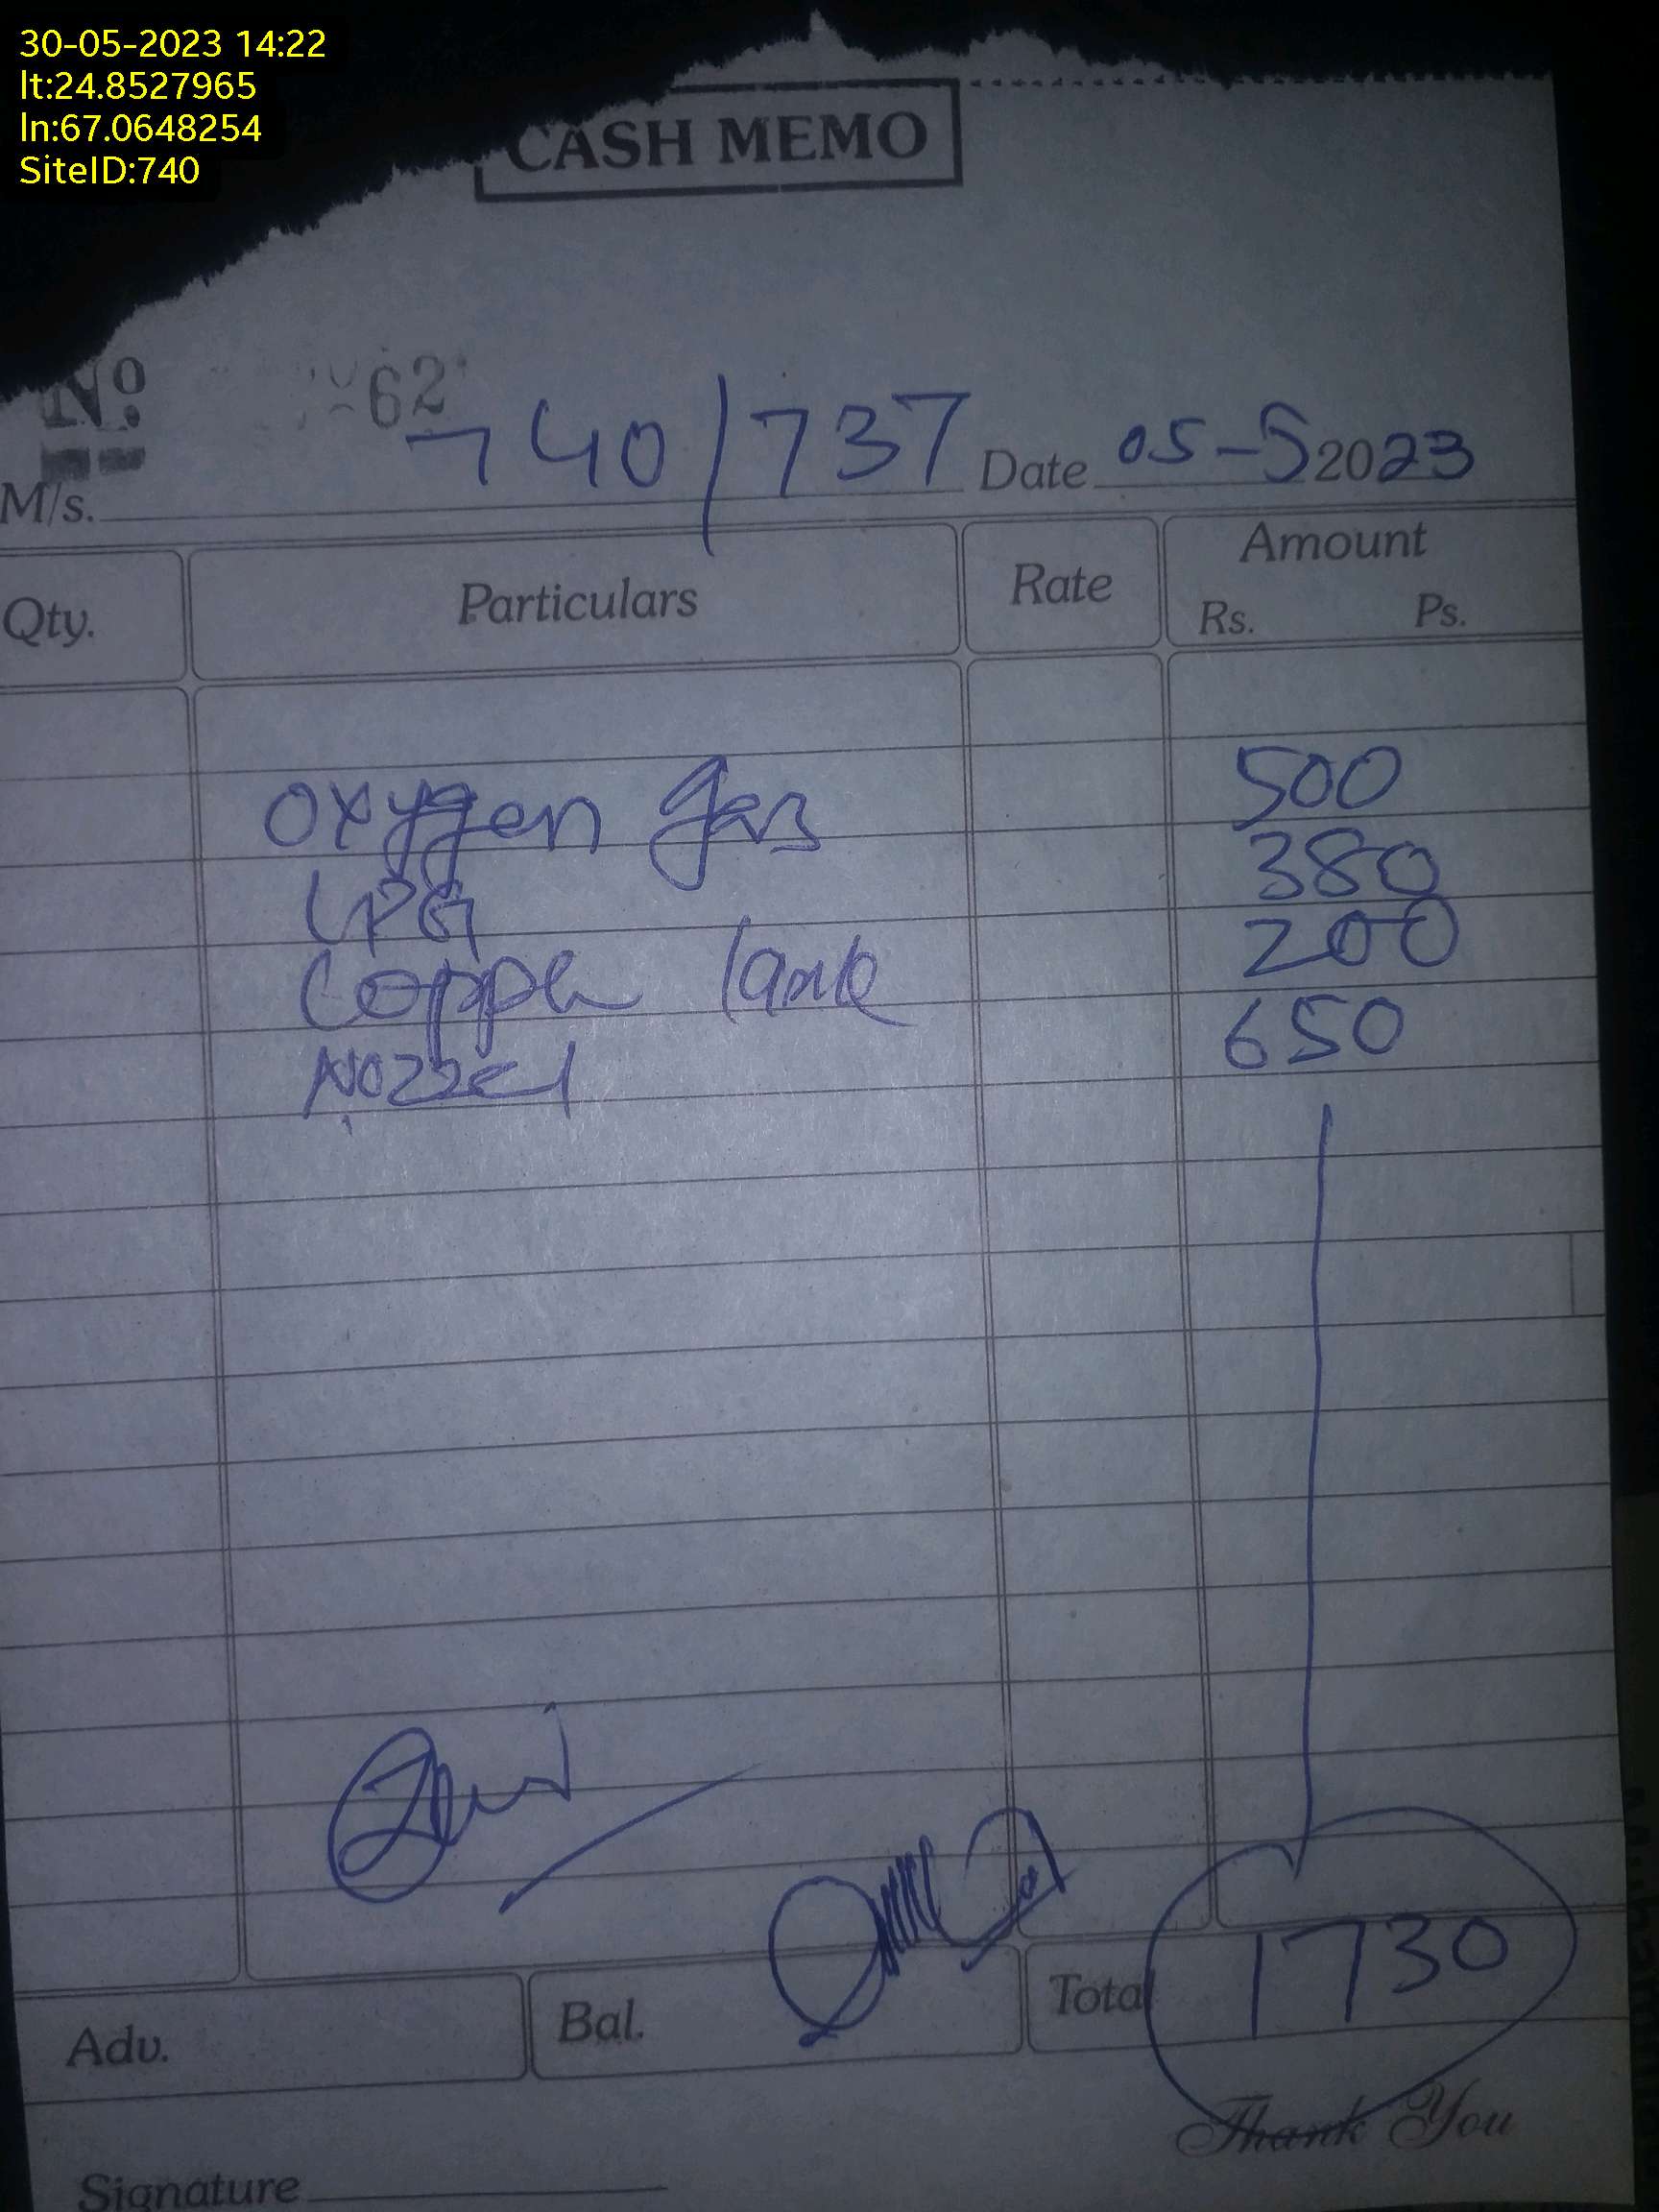 30-05-2023 14:22
lt:24.8527965
ln:67.0648254
SiteID:740
CASH MEMO
No 62
M/s. 740/737 Date 05-5 2023
Qty. Particulars Rate Amount
Rs. Ps.
Oxygen gas 500
LPG 380
Copper 200
Nozzel 650
Adv. Bal. Total 1730
Thank You
Signature